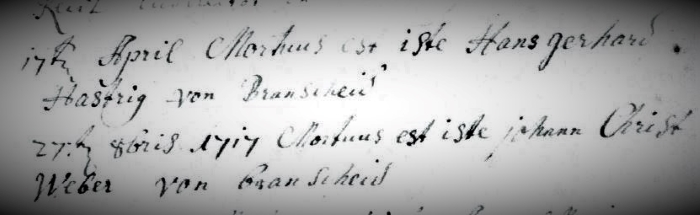 17th April Mortuus est iste Hans gerhard
Hastrig von Branscheid
27th 8bris 1717 Mortuus est iste johann Christ
Weber von Branscheid